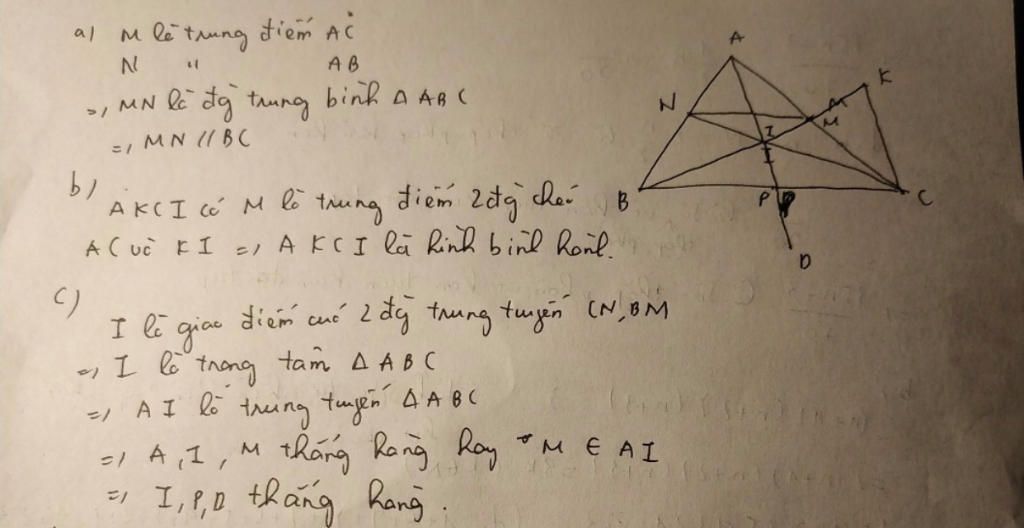 a) M là trung điểm AC
N " AB
=> MN là đg trung bình Δ ABC
=> MN // BC
b)
AKCI có M là trung điểm 2 đg chéo
AC và KI => AKCI là hình bình hành.
c)
I là giao điểm của 2 đg trung tuyến CN, BM
=> I là trọng tâm Δ ABC
=> AI là trung tuyến Δ ABC
=> A, I, M thẳng hàng hay M ∈ AI
=> I, P, D thẳng hàng.
A
K
N
M
I
I
B
P
C
D